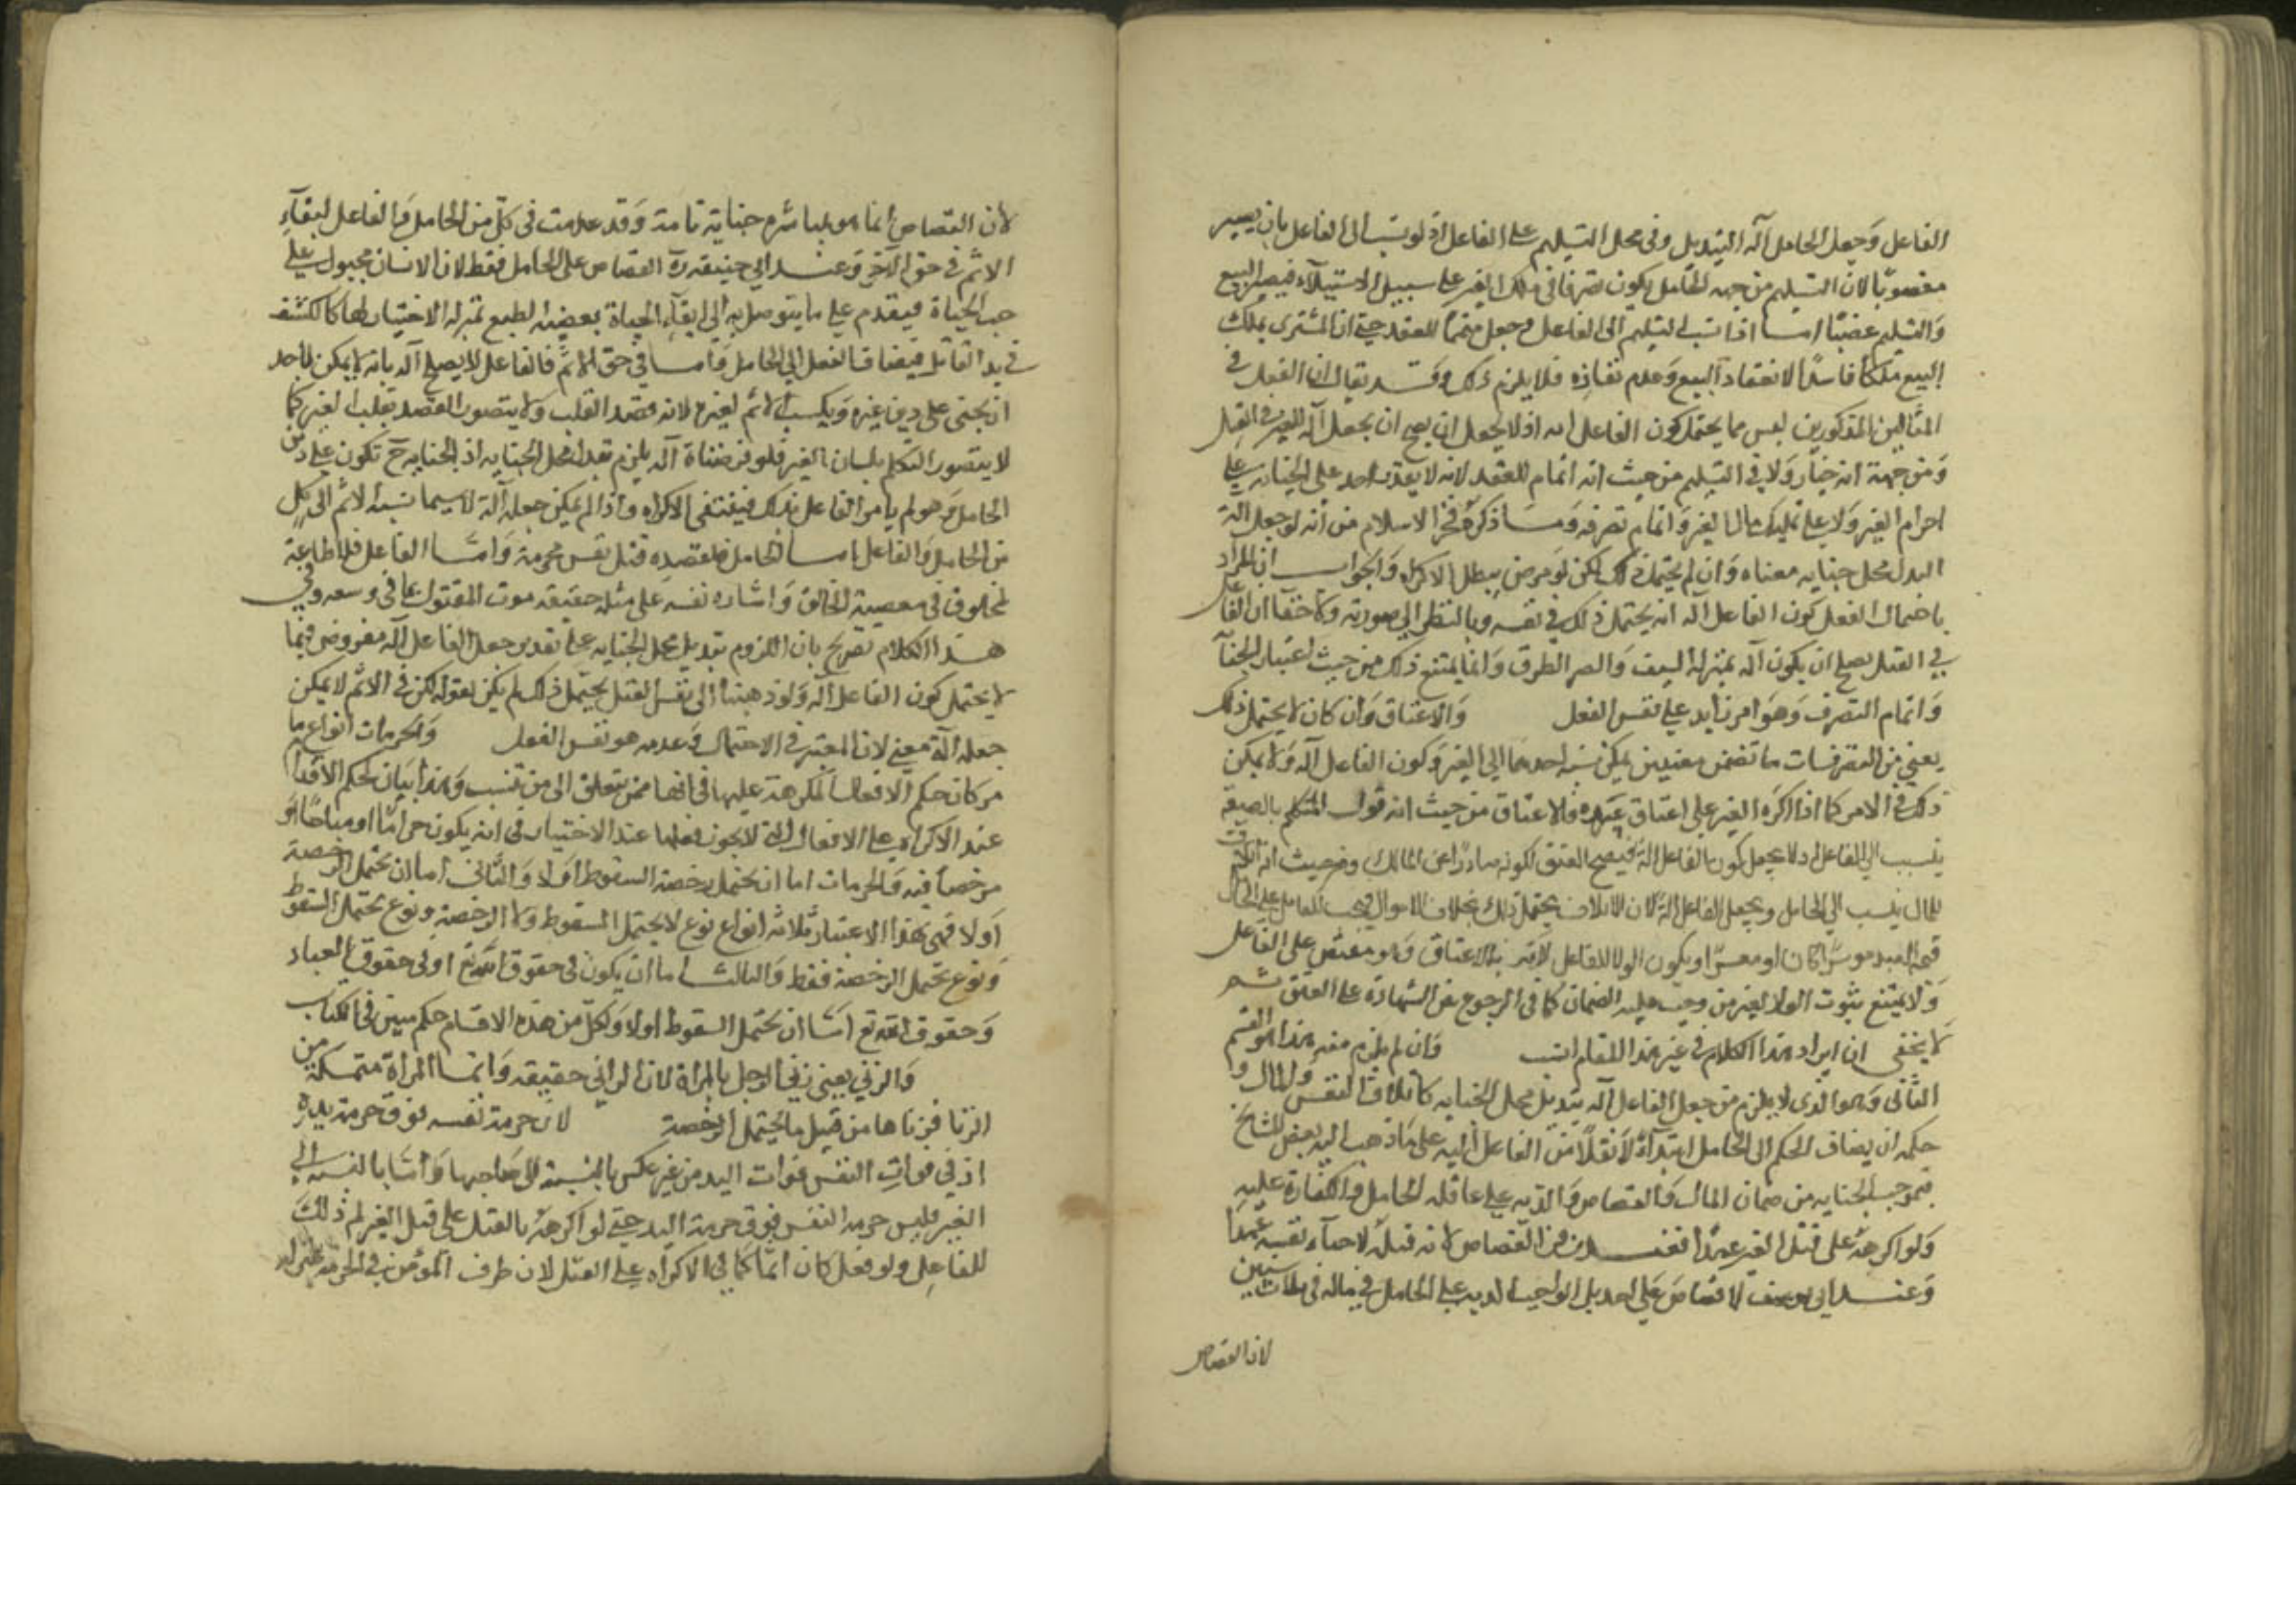 الفاعل وجعل الحامل آلة التبديل وفي محل التسليم على الفاعل اذ لو نسب الى الفاعل بان يصير
مغصوبا لان التسليم من جهة الحامل يكون تصرفا في ملك الغير على سبيل الاستيلاء فيصير البيع
والتسليم غصبا اما اذا نسب التسليم الى الفاعل وجعل متمما للعقد حتى ان المشترى يملك
البيع ملكا فاسدا لانعقاد البيع وعدم نفاذه فلا يلزم ذلك وقد يقال ان الفعل في
المثالين المذكورين ليس مما يحتمل كون الفاعل اله اذ لا يصح ان يجعل آلة للغير في القتل
ومن جهة انه جناية ولا في التسليم من حيث انه اتمام للعقد لانه لا يقدر احد على الجناية على
احرام الغير ولا على تمليك مال الغير واتمام تصرفه وما ذكره فخر الاسلام من انه لو جعل آلة
البدل محل جنايه معناه وان لم يحتمل ذلك لكن لو فرض يبطل الاكراه والجواب ان المراد
باحتمال الفعل كون الفاعل آلة انه يحتمل ذلك في نفسه وبالنظر الى صورته ولا خفا ان الفاعل
في القتل يصلح ان يكون آلة بمنزلة السيف وانما يمتنع ذلك من حيث اعتبار الجناية
واتمام التصرف وهو امر زايد على نفس الفعل والاعتاق وان كان لا يحتمل ذلك
يعني من التصرفات ما تضمن معنيين يمكن نسبة احدهما الى الغير وكون الفاعل آلة ولا يمكن
ذلك في الاخر كما اذا اكره الغير على اعتاق عبده فالاعتاق من حيث انه قول المتكلم بالصيغة
ينسب الى الفاعل ولا يجعل كون الفاعل آلة فيصح العتق لكونه صادرا عن المالك ومن حيث انه اتلاف
للمال ينسب الى الحامل ويجعل الفاعل آلة لان الاتلاف يحتمل ذلك بخلاف الاقوال فيجب للفاعل على الحامل
قيمة العبد موسرا كان او معسرا ويكون الولا للفاعل لانه بالاعتاق وهو مقتصر على الفاعل
ولا يمتنع ثبوت الولا لغير من وجب عليه الضمان كما في الرجوع عن الشهادة على العتق ثم
لا يخفى ان ايراد هذا الكلام في غير هذا المقام انسب وان لم يلزم منه هذا هو القسم
الثانى وهو الذى لا يلزم من جعل الفاعل آلة تبديل محل الجنايه كاتلاف النفس والمال و
حكمه ان يضاف الحكم الى الحامل ابتداء لا نقلا من الفاعل اليه على ما ذهب اليه بعض المشايخ
فموجب الجنايه من ضمان المال والقصاص والديه على عاقلة الحامل والكفارة عليه
ولو اكرهه على قتل الغير عمدا فعند زفر القصاص لانه قتله لاحياء نفسه عمدا
وعند ابى يوسف لا قصاص على احد بل الواجب الديه على الحامل في ماله في ثلاث سنين
لان القصاص
لان القصاص انما هو لمباشرة جناية تامة وقد عدمت في كل من الحامل والفاعل لبقاء
الاثم في حق الاخر وعند ابي حنيفة رح القصاص على الحامل فقط لان الانسان مجبول على
حب الحياة فيقدم على ما يتوصل به الى ابقاء الحياة بقضية الطبع بمنزلة الاختيار لها كالسيف
في يد القاتل فيضاف الفعل الى الحامل واما في حق الاثم فالفاعل لا يصلح آلة بانه لا يمكن لاحد
ان يجنى على دين غيره ويكسب الاثم لغيره لانه قصد القلب ولا يتصور القصد بقلب الغير كما
لا يتصور التكلم بلسان الغير فلو فرضناه آلة يلزم تبديل محل الجنايه اذ الجنايه ح تكون على دين
الحامل وهو لم يامر الفاعل بذلك فينتفى الاكراه واذا لم يمكن جعله آلة لا سيما نسبة الاثم الى كل
من الحامل والفاعل اما الحامل فلقصده قتل نفس محرمة واما الفاعل فلاطاعة
لمخلوق في معصية الخالق وايثاره نفسه على مثله حقيقة موت المقتول بما في وسعه وفي
هذا الكلام تصريح بان اللزوم تبديل محل الجنايه على تقدير جعل الفاعل آلة مفروض فيما
لا يحتمل كون الفاعل آلة ولو ذهبنا الى نفس القتل يحتمل ذلك لم يكن لقوله لكن في الاثم لا يمكن
جعله آلة معنى لان المعتبر في الاحتمال وعدمه هو نفس الفعل والحرمات انواع ما
مر كان حكم الافعال المكرهة عليها في انها ممن يتعلق الى من تنسب وهذا بيان لحكم الاقدام
عند الاكراه على الافعال التي لا يجوز فعلها عند الاختيار في انه يكون حراما او مباحا او
مرخصا فيه والحرمات اما ان تحتمل رخصة السقوط او لا والثانى اما ان تحتمل الرخصة
او لا فهي بهذا الاعتبار ثلاثة انواع نوع لا يحتمل السقوط ولا الرخصة ونوع يحتمل السقوط
ونوع يحتمل الرخصة فقط والثالث اما ان يكون في حقوق الله تع او في حقوق العباد
وحقوق الله تع اما ان تحتمل السقوط او لا ولكل من هذه الاقسام حكم مبين في الكتاب
والزنى يعني زنى الرجل بالمراة لان الزاني حقيقة وانما المراة متمكنة من
الزنا فزناها من قبيل ما يحتمل الرخصة لان حرمة نفسه فوق حرمة يده
اذ في فوات النفس فوات اليد من غير عكس بالنسبة الى صاحبها واما بالنسبة الى
الغير فليس حرمة النفس فوق حرمة اليد حتى لو اكرهه بالقتل على قتل الغير لم ذلك
للفاعل ولو فعل كان اثما كما في الاكراه على القتل لان طرف المؤمن في الحرمة بمنزلة